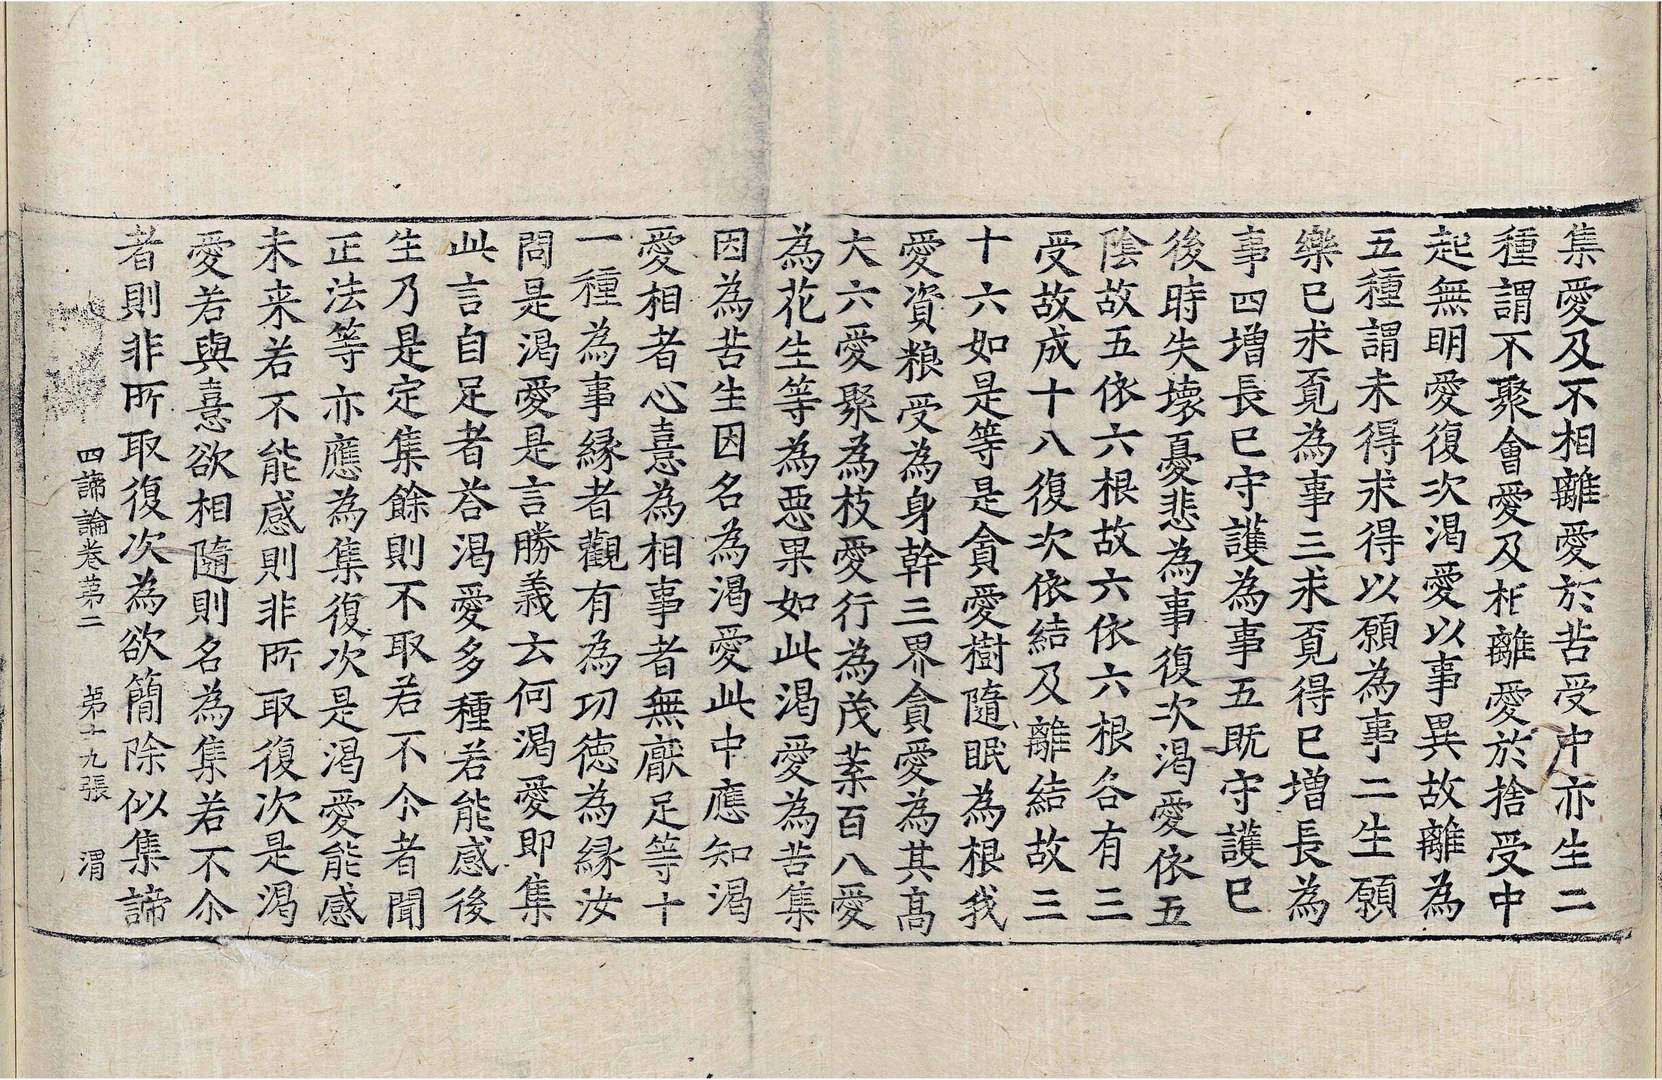 集愛及不相離愛於苦受中亦生二
種謂不聚會愛及相離愛於捨受中
起無明愛復次渴愛以事異故離為
五種謂未得求得以願為事二生願
樂已求覔為事三求覔得已增長為
事四增長已守護為事五既守護已
後時失壞憂悲為事復次渴愛依五
陰故五依六根故六依六根各有三
受故成十八復次依結及離結故三
十六如是等是貪愛樹隨眠為根我
愛資粮受為身幹三界貪愛為其高
大六愛聚為枝愛行為茂葉百八愛
為花生等為惡果如此渴愛為苦集
因為苦生因名為渴愛此中應知渴
愛相者心憙為相事者無厭足等十
一種為事緣者觀有為功德為緣汝
問是渴愛是言勝義云何渴愛即集
此言自足者荅渴愛多種若能感後
生乃是定集餘則不取若不尒者聞
正法等亦應為集復次是渴愛能感
未来若不能感則非所取復次是渴
愛若與憙欲相隨則名為集若不尒
者則非所取復次為欲簡除似集諦
四諦論卷第二 第十九張 渭